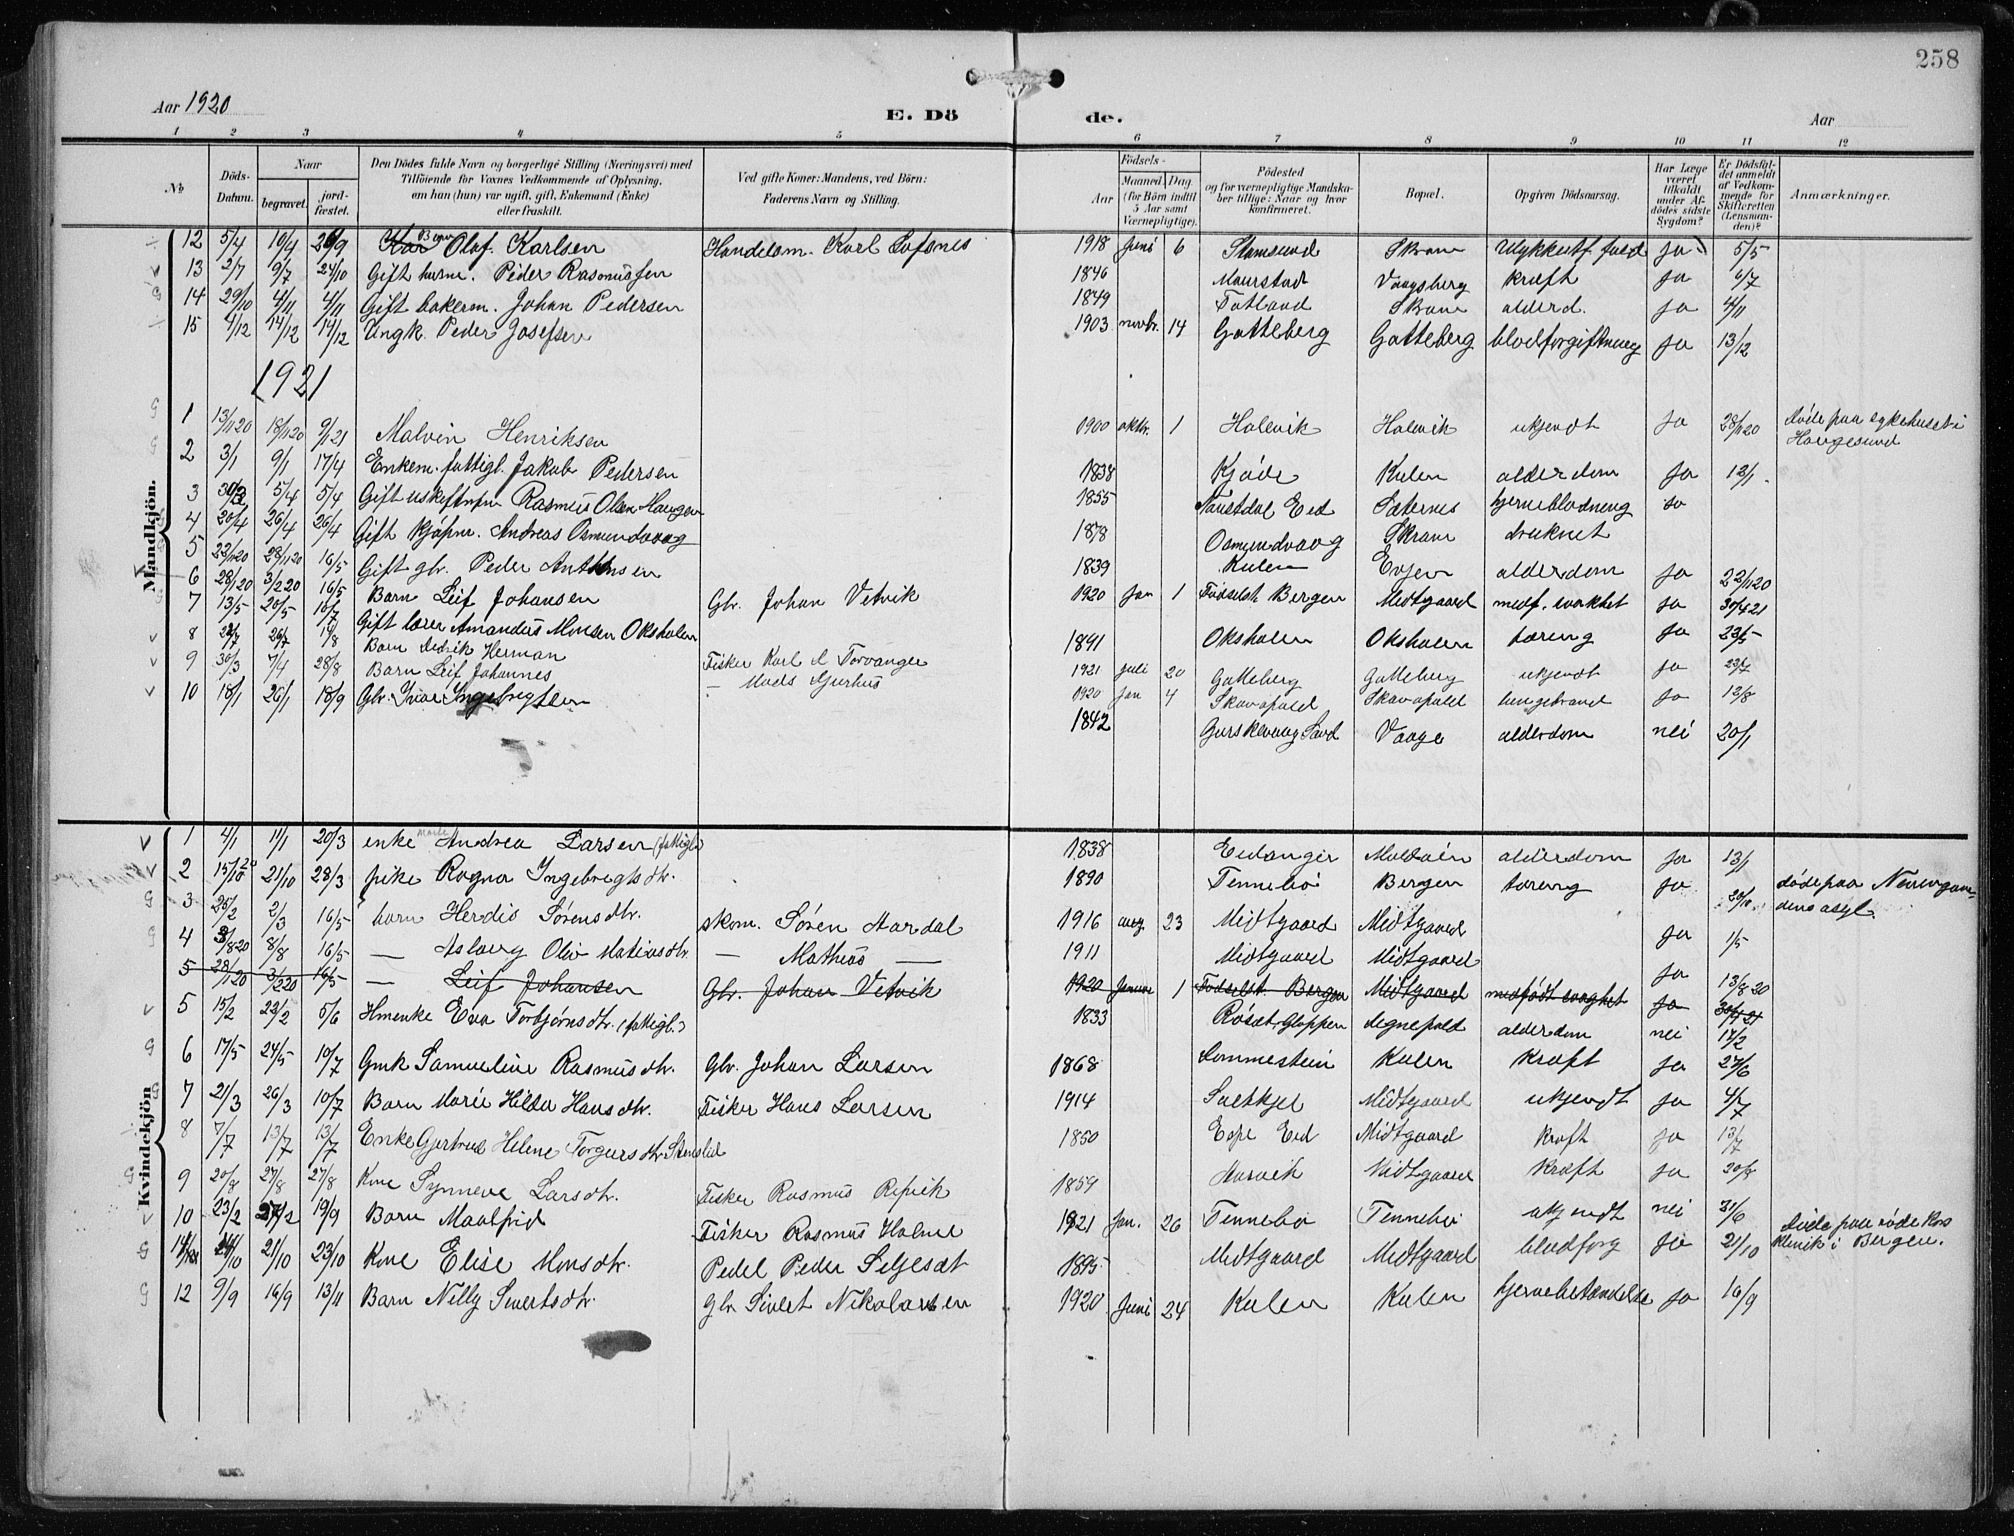 258
Aar 1920
E. Dö de.
Aar
1 2 3 4 5 6 7 8 9 10 11 12
No
Döds-Datum.
Naar
begravet.
jord-fæstet.
Den Dödes fulde Navn og borgerlige Stilling (Næringsvei) med
Tilföiende for Voxnes Vedkommende af Oplysning,
om han (hun) var ugift, gift, Enkemand (Enke)
eller fraskilt.
Ved gifte Koner: Mandens, ved Börn:
Faderens Navn og Stilling.
Födsels-
Aar
Maaned. Dag.
(for Börn indtil
5 Aar samt
Værnepligtige).
Födested
og for værnepligtige Mandska-
ber tillige: Naar og hvor
konfirmeret.
Bopæl.
Opgiven Dödsaarsag.
Har Læge
været
tilkaldt
under Af-
dödes sidste
Sygdom?
Er Dödsfal-
det anmeldt
af Vedkom-
mende for
Skifteretten
(Lensman-
den)?
Anmærkninger.
Mandkjön.
12 5/4 10/4 26/9 Barn Olaf Karlsen Handelsm. Karl Lofsnes 1918 juni 6 Stamsund Skram ulykkestf. fald ja 5/5
13 2/7 9/7 24/10 Gift husm. Peder Rasmussen 1846 Maurstad Vaagsberg kræft ja 6/7
14 29/10 4/11 4/11 Gift bakerm. Johan Pedersen 1849 Totland Skram alderd. ja 4/11
15 4/12 14/12 14/12 Ungk. Peder Josefsen 1903 novbr. 14 Gotteberg Gotteberg blodforgiftning ja 13/12
1921
1 13/11 20 18/11 20 9/1 21 Malvin Henriksen 1900 oktbr. 1 Holevik Holevik ukjendt ja 28/11 20 döde paa sykehuset i
Haugesund
2 3/1 9/1 17/4 Enkem. fattigl. Jakob Pedersen 1838 Kjöde Kulen alderdom ja 12/1
3 30/3 5/4 5/4 Gift Rasmus Olsen Haugen 1855 Naustdal Eid Sæternes hjerneblödning ja
4 20/4 26/4 26/4 Gift kjöpm. Andreas Osmundvaag 1878 Osmundvaag Skram druknet
5 22/11 20 28/11 20 16/5 Gift gbr. Peder Antonsen 1839 Kulen Evjen alderdom ja 22/11 20
6 28/1 20 3/2 20 16/5 Barn Leif Johansen Gbr. Johan Vetvik 1920 Jan 1 Födselst. Bergen Midtgaard medf. svakhet ja 30/4 21
7 13/5 20/5 10/7 Gift lærer Amandus Monsen Oksholen 1891 Oksholen Oksholen tæring ja
8 26/7 Barn Didrik Herman Fisker Karl A Torvanger 1921 juli 20 Gotteberg Gotteberg ukjendt ja 23/7
9 30/3 7/4 28/8 Barn Leif Johannes — Mads Gjerhus 1920 Jan 4 Skavøpold Skavøpold lungebrand ja 12/8
10 18/1 26/1 18/9 Gbr. Ivar Ingebrigtsen 1842 Gurskevaag Sand Vaage alderdom nei 20/1
Kvindekjön
1 4/1 11/1 20/3 enke Marte Andrea Larsen (fattigl.) 1838 Eidanger Maldøen alderdom ja 13/1
2 15/10 20 21/10 28/3 pike Ragna Ingebregtsdtr. 1890 Tennebö Bergen tæring ja 20/10 döde paa
dens asyl.
3 25/2 2/3 16/5 barn Herdis Sørensdtr. skom. Søren Aardal 1916 aug. 23 Midtgaard Midtgaard ja 1/5
4 3/8 20 8/8 16/5 — Asborg Oliv Matiasdtr. — Mathias — 1911 Midtgaard Midtgaard ja 13/8 20
5 28/1 20 3/2 20 16/5 — Leif Johansen Gbr. Johan Vetvik 1920 Januar 1 Födselst. Bergen Midtgaard medfødt svaghet ja 30/4 21
5 15/2 22/2 5/6 Hmenke Eva Torbjörnsdtr. (fattigl.) 1833 Rösæt, Gloppen Degnepold alderdom nei 17/2
6 17/5 24/5 10/7 Gmk Samueline Rasmusdtr. Gbr. Johan Larsen 1868 Lommestein Kulen Kræft ja 27/6
7 21/3 26/3 10/7 Barn Marie Hilda Hansdtr. Fisker Hans Larsen 1914 Saltkjel Midtgaard ukjendt ja 4/7
8 7/7 13/7 13/7 Enke Gjertrud Helene Torgersdtr Stenslid 1850 Espe Eid Midtgaard kræft ja 13/7
9 20/8 27/8 27/8 Kone Synneve Larsdtr. Fisker Rasmus Refvik 1859 Aarvik Midtgaard Kræft ja 20/8
10 23/2 27/2 19/9 Barn Maalfrid Fisker Rasmus Holme 1921 Jan. 26 Tennebö Tennebö ukjendt nei 21/6
11 14/10 21/10 23/10 Kone Elise Monsdtr. Pedel Peder Seljesæt 1895 Midtgaard Midtgaard blodforg ja 21/10 döde paa röde kors
klinik i Bergen.
12 9/9 16/9 13/11 Barn Nilly Sivertsdtr. Gbr Sivert Nikolaisen 1920 Juni 24 Kulen Kulen hjernebetændelse ja 16/9